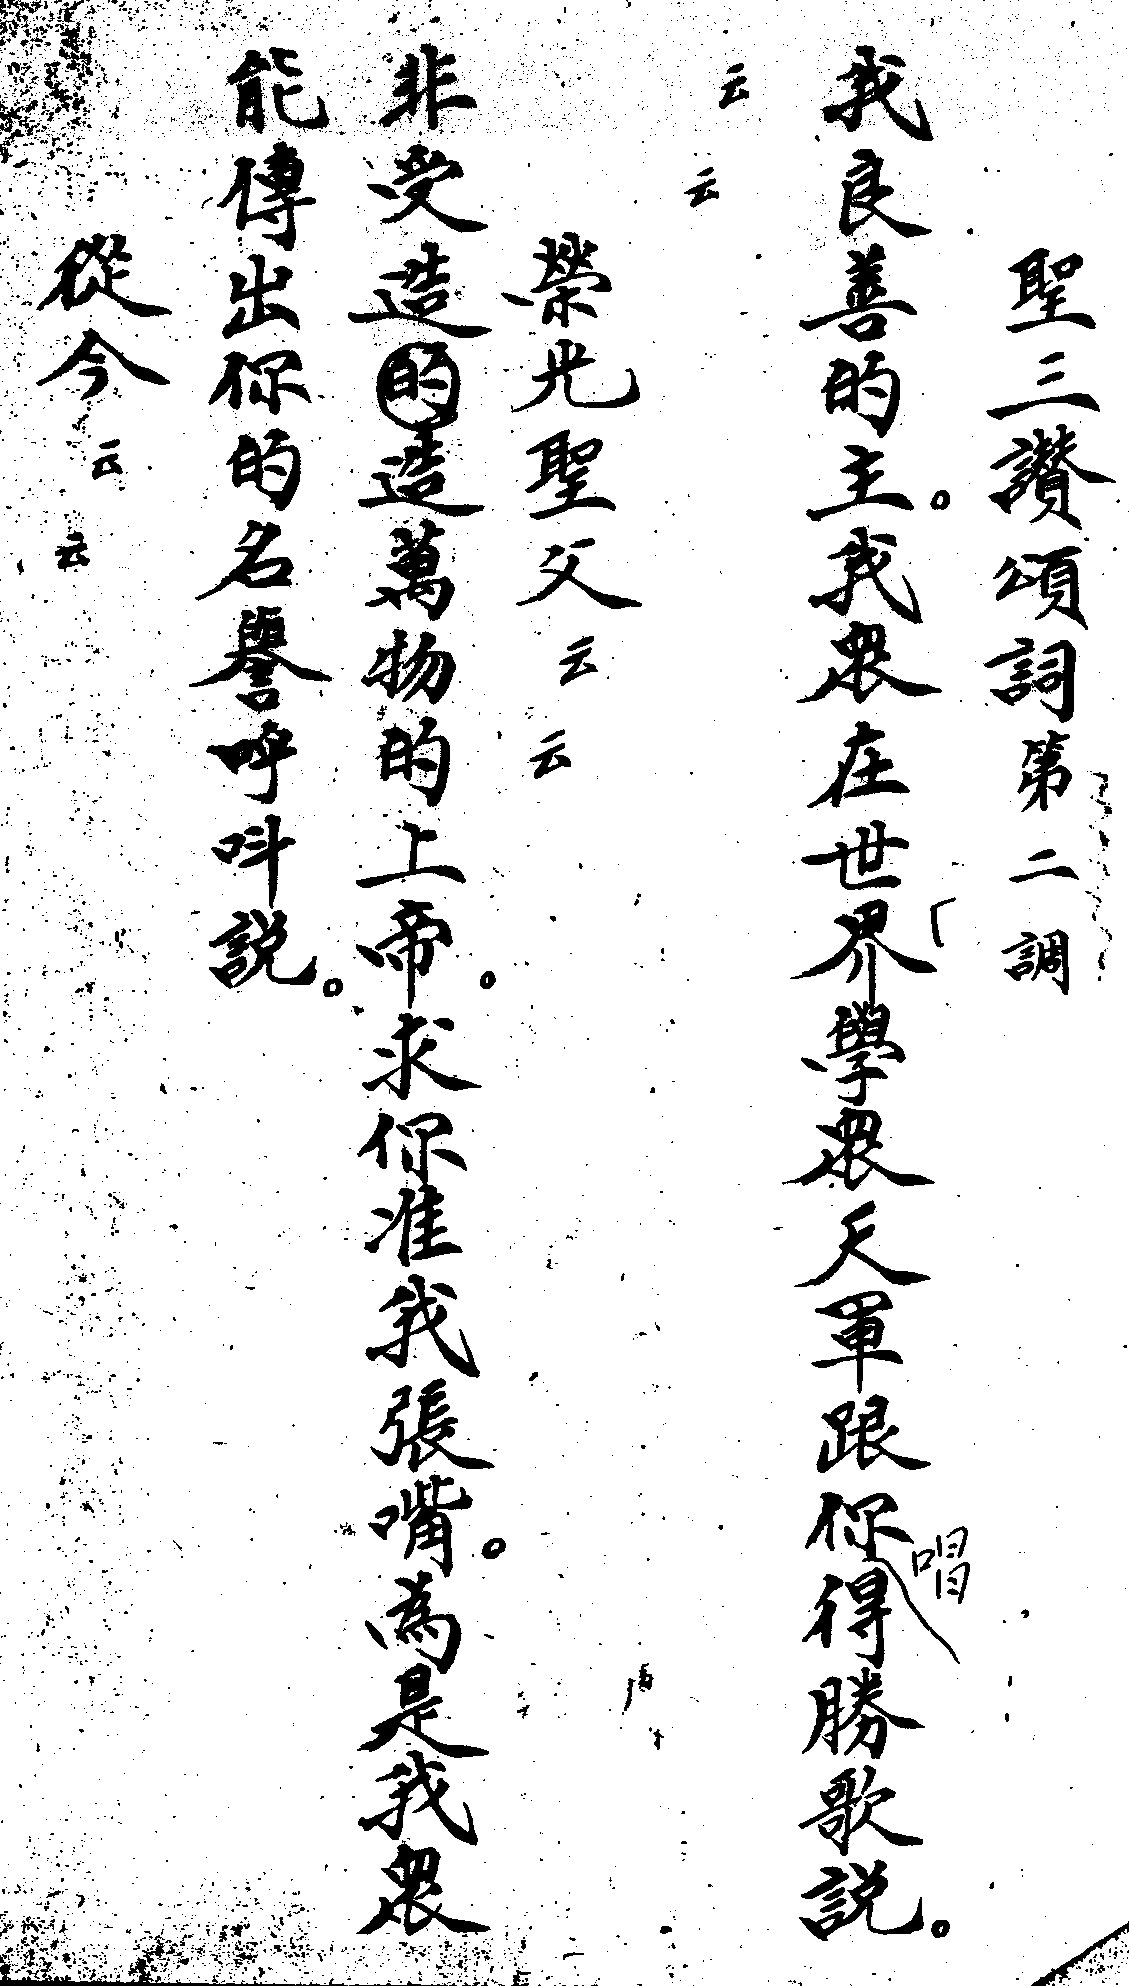 聖三讚頌詞第二調
我良善的主。我眾在世界學眾天軍跟你唱得勝歌說。
云云
榮光聖父云云
非受造的造萬物的上帝。求你准我張嘴。為是我眾
能傳出你的名譽呼呌說。
從今云云